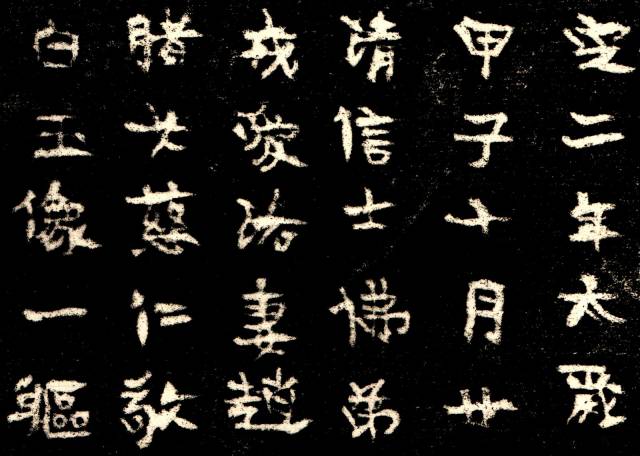 定二年太歲
甲子十月廿
清信士佛弟
戎愛洛妻趙
腊女慈仁敬
白玉像一軀